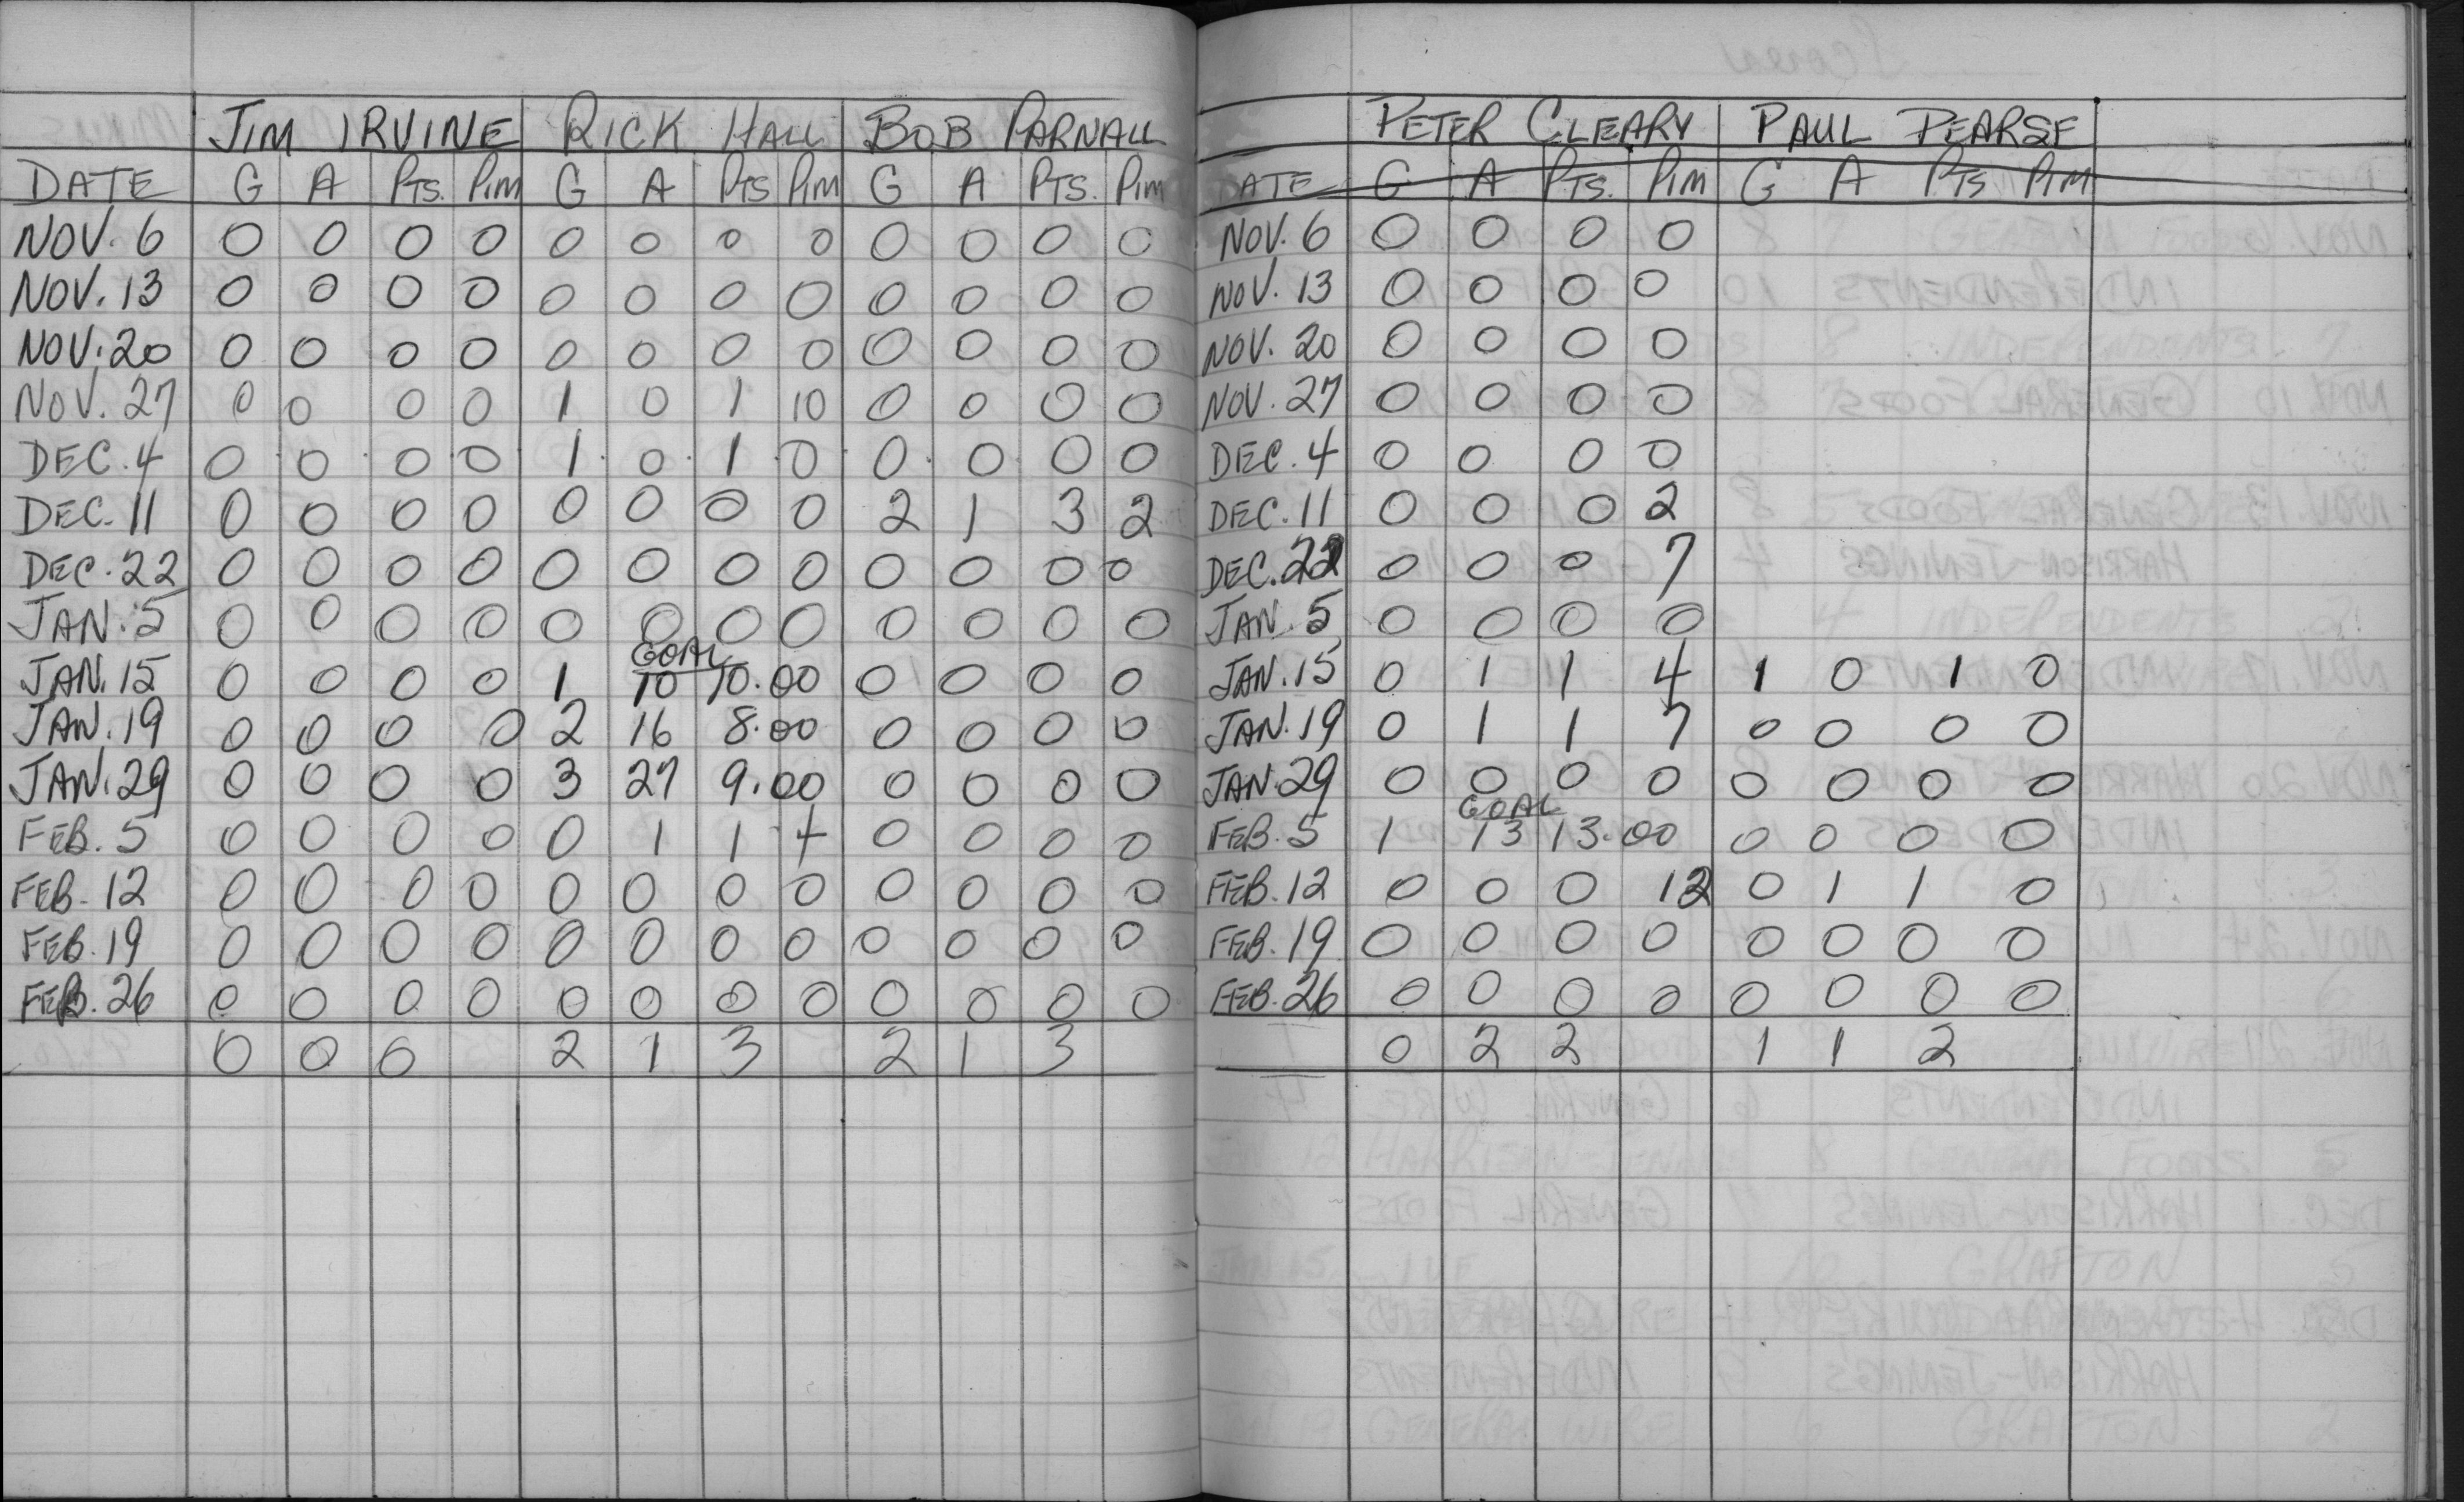 JIM IRVINE RICK HALL BOB PARNALL
DATE G A PTS. PIM G A PTS PIM G A PTS. PIM
NOV. 6 0 0 0 0 0 0 0 0 0 0 0 0
NOV. 13 0 0 0 0 0 0 0 0 0 0 0 0
NOV. 20 0 0 0 0 0 0 0 0 0 0 0 0
NOV. 27 0 0 0 0 1 0 1 10 0 0 0 0
DEC. 4 0 0 0 0 1 0 1 0 0 0 0 0
DEC. 11 0 0 0 0 0 0 0 0 2 1 3 2
DEC. 22 0 0 0 0 0 0 0 0 0 0 0 0
JAN. 5 0 0 0 0 0 0 0 0 0 0 0 0
GOAL
JAN. 15 0 0 0 0 1 10 10.00 0 0 0 0
JAN. 19 0 0 0 0 2 16 8.00 0 0 0 0
JAN. 29 0 0 0 0 3 27 9.00 0 0 0 0
FEB. 5 0 0 0 0 0 1 1 4 0 0 0 0
FEB. 12 0 0 0 0 0 0 0 0 0 0 0 0
FEB. 19 0 0 0 0 0 0 0 0 0 0 0 0
FEB. 26 0 0 0 0 0 0 0 0 0 0 0 0
0 0 0 2 1 3 2 1 3
PETER CLEARY PAUL PEARSE
DATE G A PTS. PIM G A PTS PIM
NOV. 6 0 0 0 0
NOV. 13 0 0 0 0
NOV. 20 0 0 0 0
NOV. 27 0 0 0 0
DEC. 4 0 0 0 0
DEC. 11 0 0 0 2
DEC. 22 0 0 0 7
JAN. 5 0 0 0 0
JAN. 15 0 1 1 4 1 0 1 0
JAN. 19 0 1 1 7 0 0 0 0
JAN. 29 0 0 0 0 0 0 0 0
GOAL
FEB. 5 1 13 13.00 0 0 0 0
FEB. 12 0 0 0 12 0 1 1 0
FEB. 19 0 0 0 0 0 0 0 0
FEB. 26 0 0 0 0 0 0 0 0
0 2 2 1 1 2